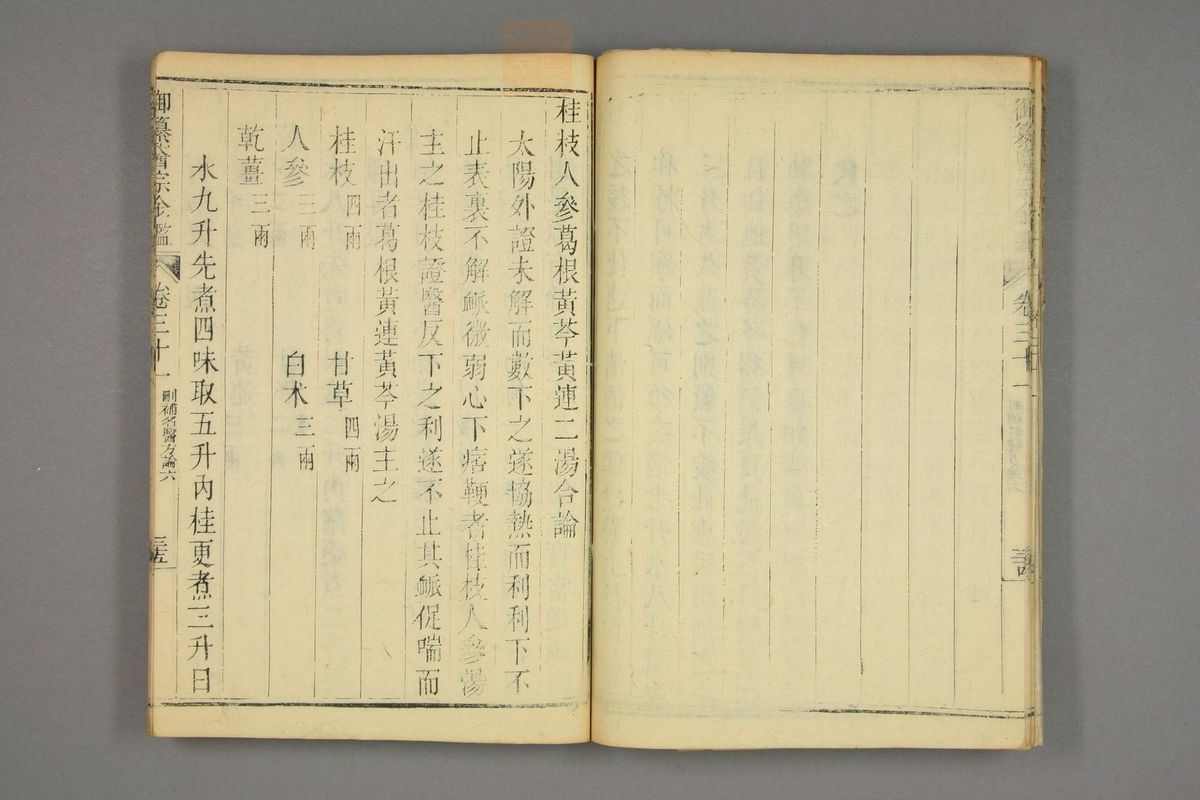 桂枝人參葛根黃芩黃連二湯合論
太陽外證未解而數下之遂協熱而利利下不
止表裏不解脈微弱心下痞鞕者桂枝人參湯
主之桂枝證醫反下之利遂不止其脈促喘而
汗出者葛根黃連黃芩湯主之
桂枝四兩 甘草四兩
人參三兩 白术三兩
乾薑三兩
水九升先煮四味取五升內桂更煮三升日
御纂醫宗金鑑 卷三十一 刪補名醫方論六 三五
卷三十一
三四